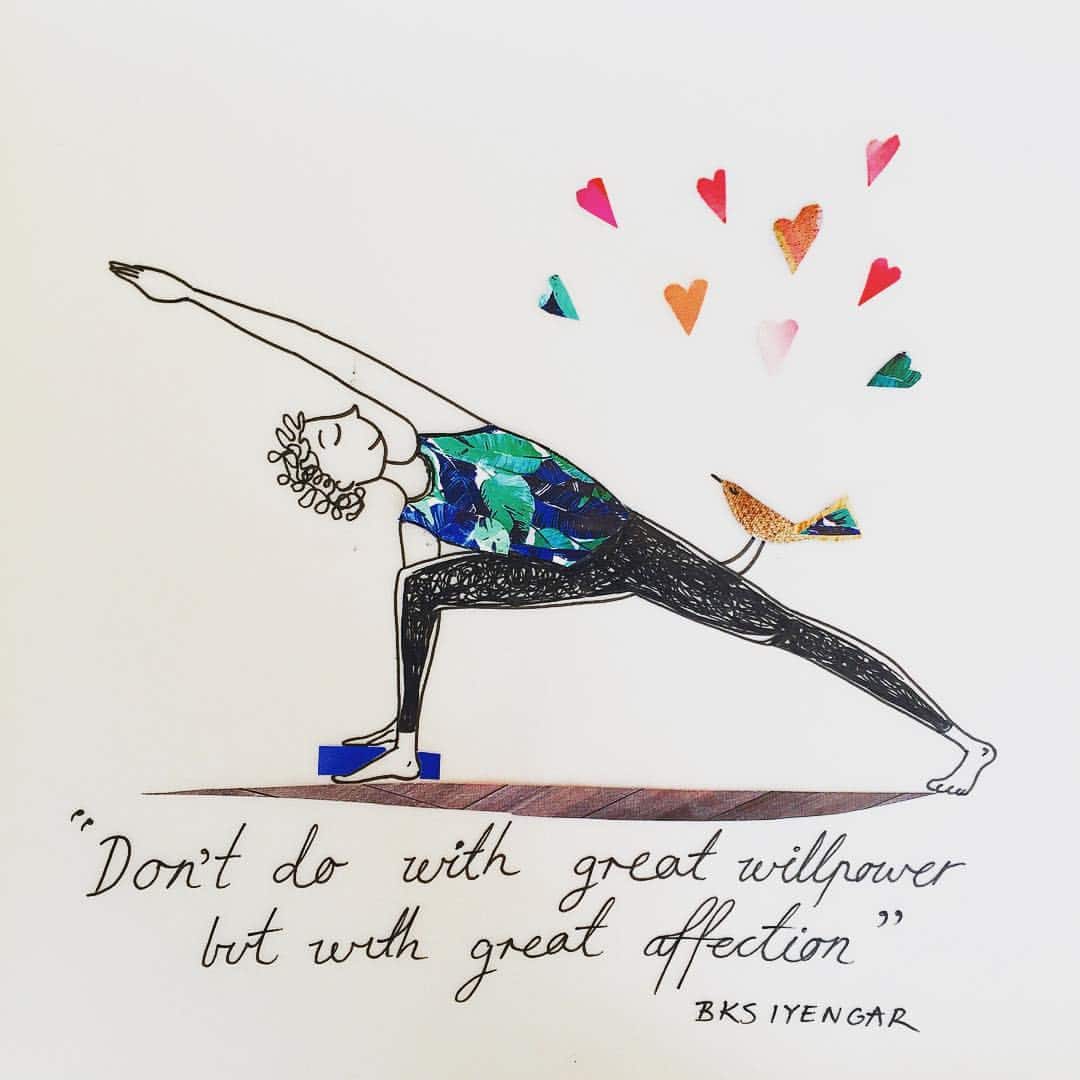 “Don't do with great willpower
but with great affection”
BKS IYENGAR